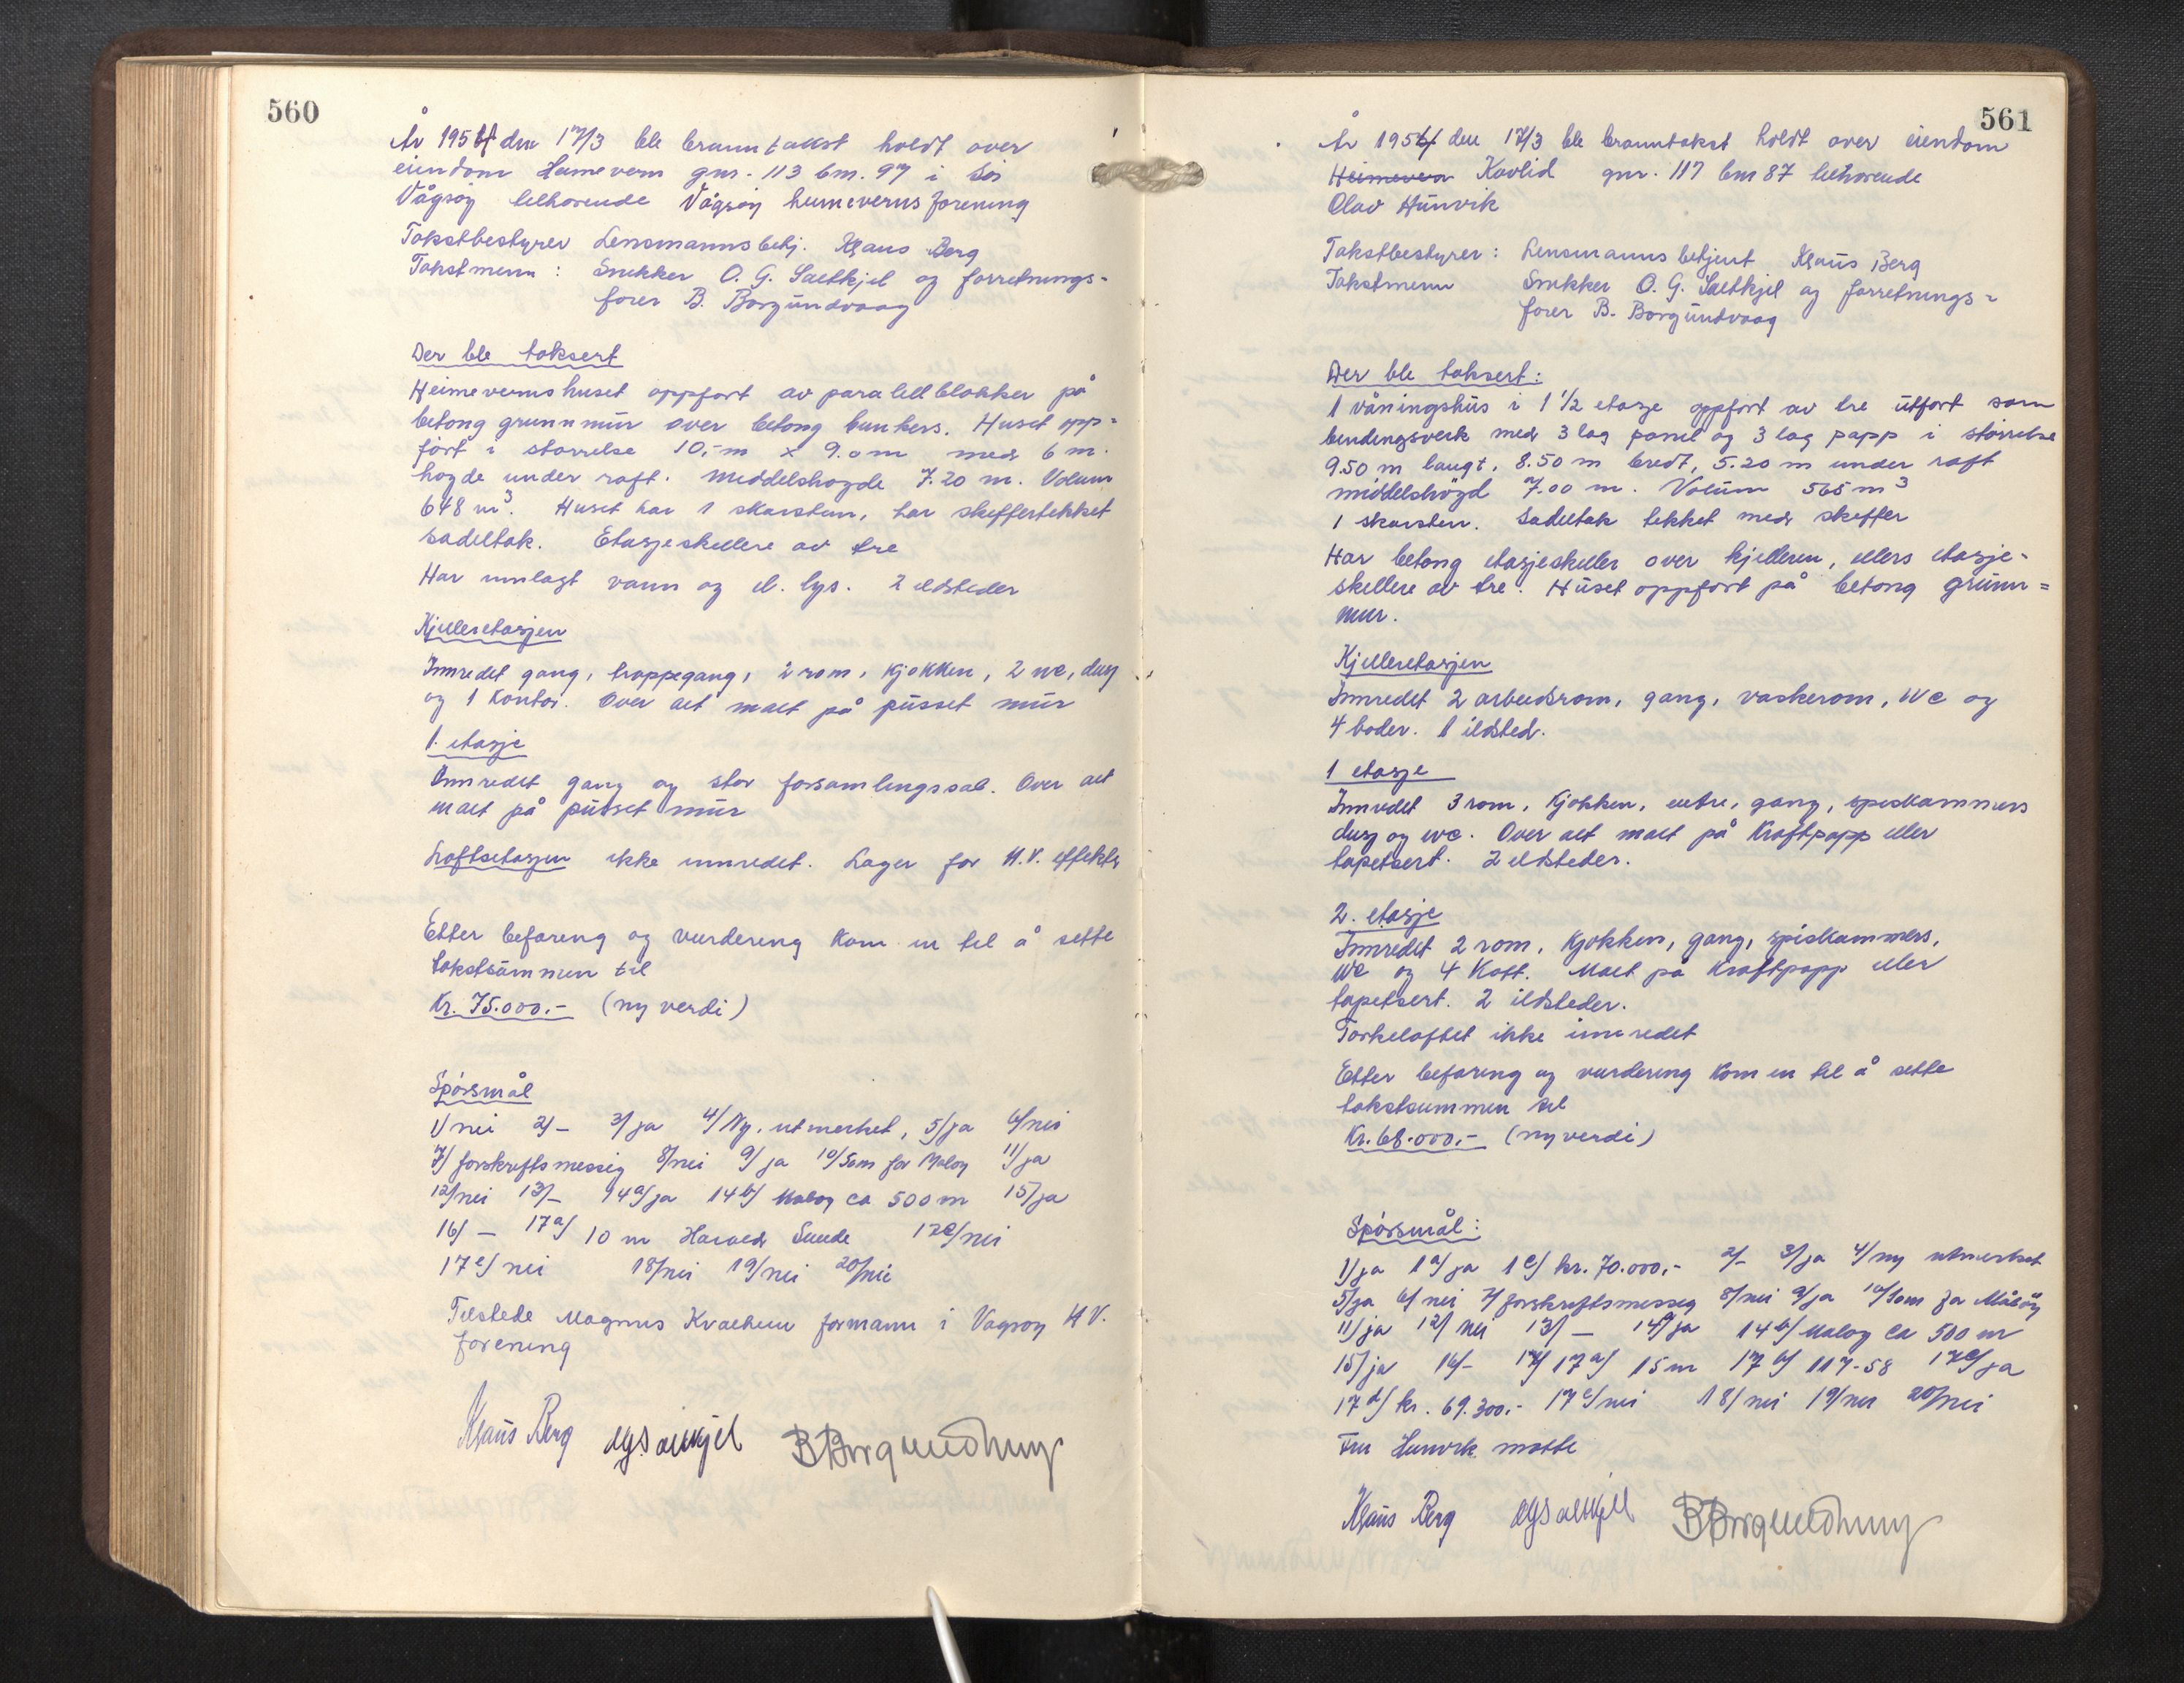 560
År 1954 den 17/3 ble branntakst holdt over
eiendom Heimevern gnr. 113 bnr. 97 i Sør
Vågsøy tilhørende Vågsøy heimevernsforening
Takstbestyrer Lensmannsbetj. Klaus Berg
Takstmenn : Snekker O. G. Sætkjel og forretnings-
fører B. Borgundvaag
Der ble taksert
Heimevernshuset oppført av paralellblokker på
betong grunnmur over betong bunkers. Huset opp=
ført i størrelse 10,- m x 9.0 m med 6 m.
høgde under raft. Middelshøgde 7.20 m. Volum
648 m³. Huset har 1 skorstein, har skiffertekket
sadeltak. Etasjeskillere av tre
Har innlagt vann og el. lys. 2 ildsteder
Kjelleretasjen
Innredet gang, trappegang, 2 rom, kjøkken, 2 wc, dusj
og 1 kontor. Over alt malt på pusset mur
1. etasje
Innredet gang og stor forsamlingssal. Over alt
malt på pusset mur
Loftsetasjen ikke innredet. Lager for H.V. effekter
Etter befaring og vurdering kom en til å sette
takstsummen til
Kr. 75.000.- (ny verdi)
Spørsmål
1/ nei 2/ - 3/ ja 4/ Ny. utmerket, 5/ ja 6/ nei
7/ forskriftsmessig 8/ nei 9/ ja 10/ Som for Måløy 11/ ja
12/ nei 13/ - 14a/ ja 14b/ Måløy ca 500 m 15/ ja
16/ - 17a/ 10 m Harald Sunde 17c/ nei
17e/ nei 18/ nei 19/ nei 20/ nei
Tilstede Magnus Kvalheim formann i Vågsøy H V.
forening
Klaus Berg OGSætkjel BBorgundvaag
561
År 1954 den 17/3 ble branntakst holdt over eiendom
Heimevern Kavlid gnr. 117 bnr 87 tilhørende
Olav Hunvik
Takstbestyrer : Lensmanns betjent Klaus Berg
Takstmenn Snekker O. G. Sætkjel og forretnings=
fører B. Borgundvaag
Der ble taksert:
1 våningshus i 1 1/2 etasje oppført av tre utført som
bindingsverk med 3 lag panel og 3 lag papp i størrelse
9.50 m langt, 8.50 m bredt, 5.20 m under raft
middelshøgd 7.00 m. Volum 565 m³
1 skorsten. Sadeltak tekket med skiffer
Har betong etasjeskiller over kjelleren, ellers etasje-
skillere av tre. Huset oppført på betong grunn=
mur.
Kjelleretasjen
Innredet 2 arbeidsrom, gang, vaskerom, wc og
4 boder. 1 ildsted.
1 etasje
Innredet 3 rom, kjøkken, entre, gang, spiskammers
dusj og wc. Over alt malt på kraftpapp eller
tapetsert. 2 ildsteder.
2. etasje
Innredet 2 rom, kjøkken, gang, spiskammers,
wc og 4 kott. Malt på kraftpapp eller
tapetsert. 2 ildsteder.
Tørkeloftet ikke innredet
Etter befaring og vurdering kom en til å sette
takstsummen til
Kr. 68.000.- (nyverdi)
Spørsmål:
1/ ja 1a/ ja 1c/ kr. 70.000.- 2/- 3/ ja 4/ ny utmerket
5/ ja 6/ nei 7/ forskriftsmessig 8/ nei 9/ ja 10/ Som for Måløy
11/ ja 12/ nei 13/ - 14a/ ja 14b/ Måløy ca 500 m
15/ ja 16/- 17/ 17a/ 15 m 17b/ 117-58 17c/ ja
17d/ kr. 69.300.- 17e/ nei 18/ nei 19/ nei 20/ nei
Fru Hunvik møtte
Klaus Berg OGSætkjel BBorgundvaag